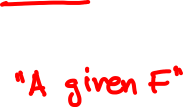 "A given F"